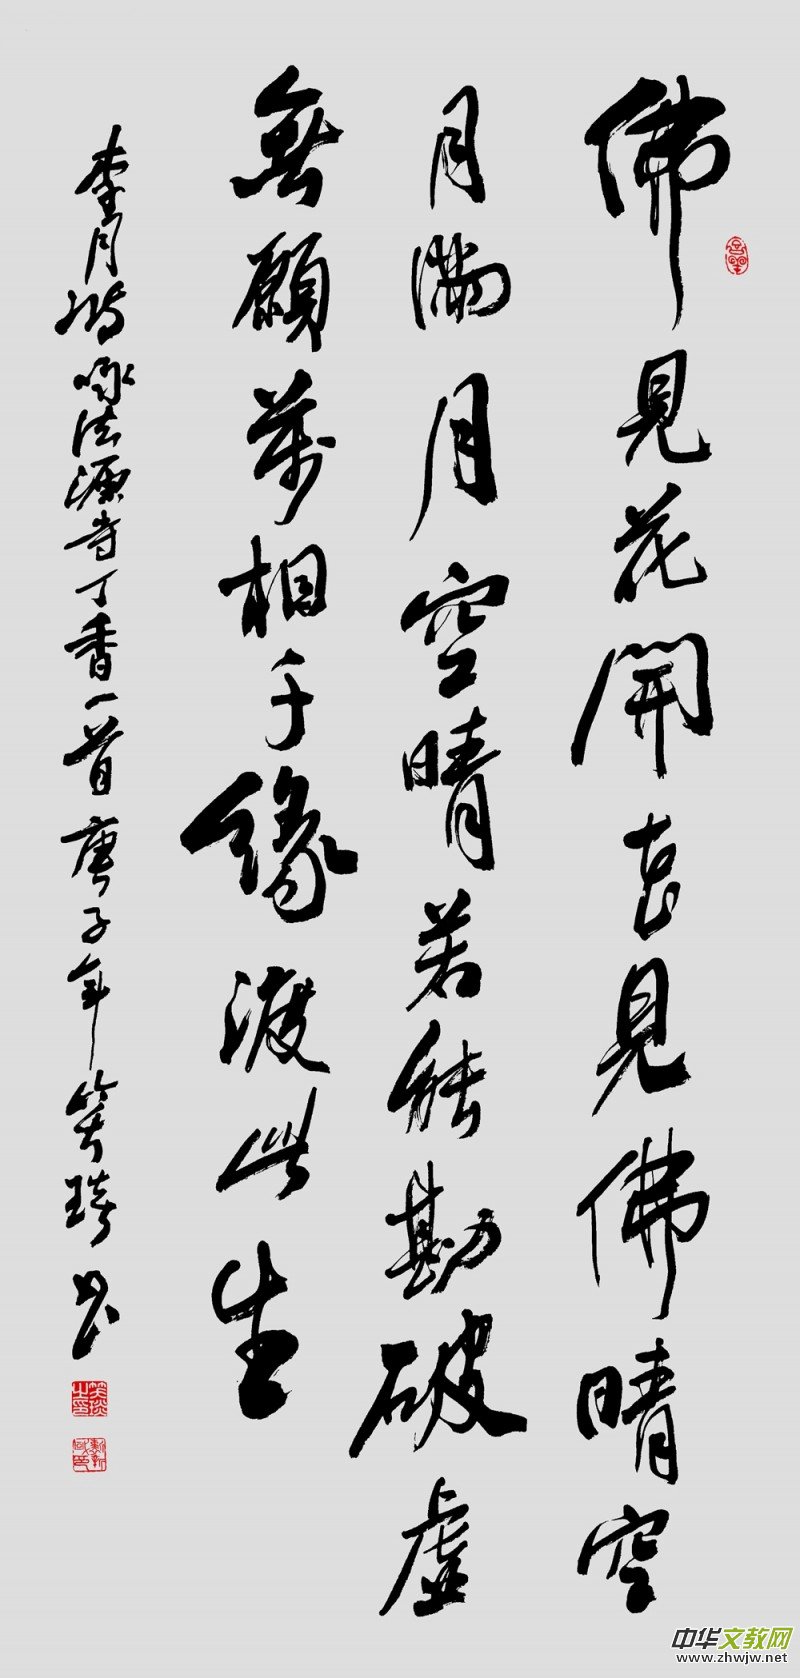 佛見花開花見佛晴空
月滿月空晴若能勘破虛
無願萬相千緣渡此生
李月詠法源寺丁香一首庚子年笑书
中华文教网
www.zhwjw.net